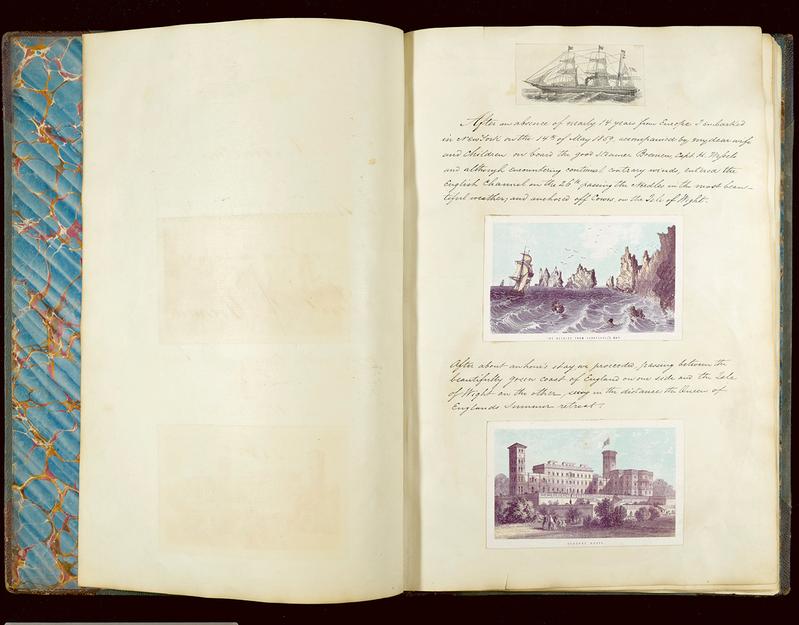 After an absence of nearly 14 years from Europe I embarked
in New York on the 14th of May 1859, accompanied by my dear wife
and Children on board the good Steamer Bremen, Capt. H. Wessels
and although encountering continual contrary winds, entered the
English Channel on the 26th passing the Needles in the most beau-
tiful weather, and anchored off Cowes on the Isle of Wight.
THE NEEDLES FROM SCRATCHELL'S BAY
After about an hour's stay we proceeded, passing between the
beautifully green coast of England on one side and the Isle
of Wight on the other, seeing in the distance the Queen of
Englands Summer retreat.
OSBORNE HOUSE